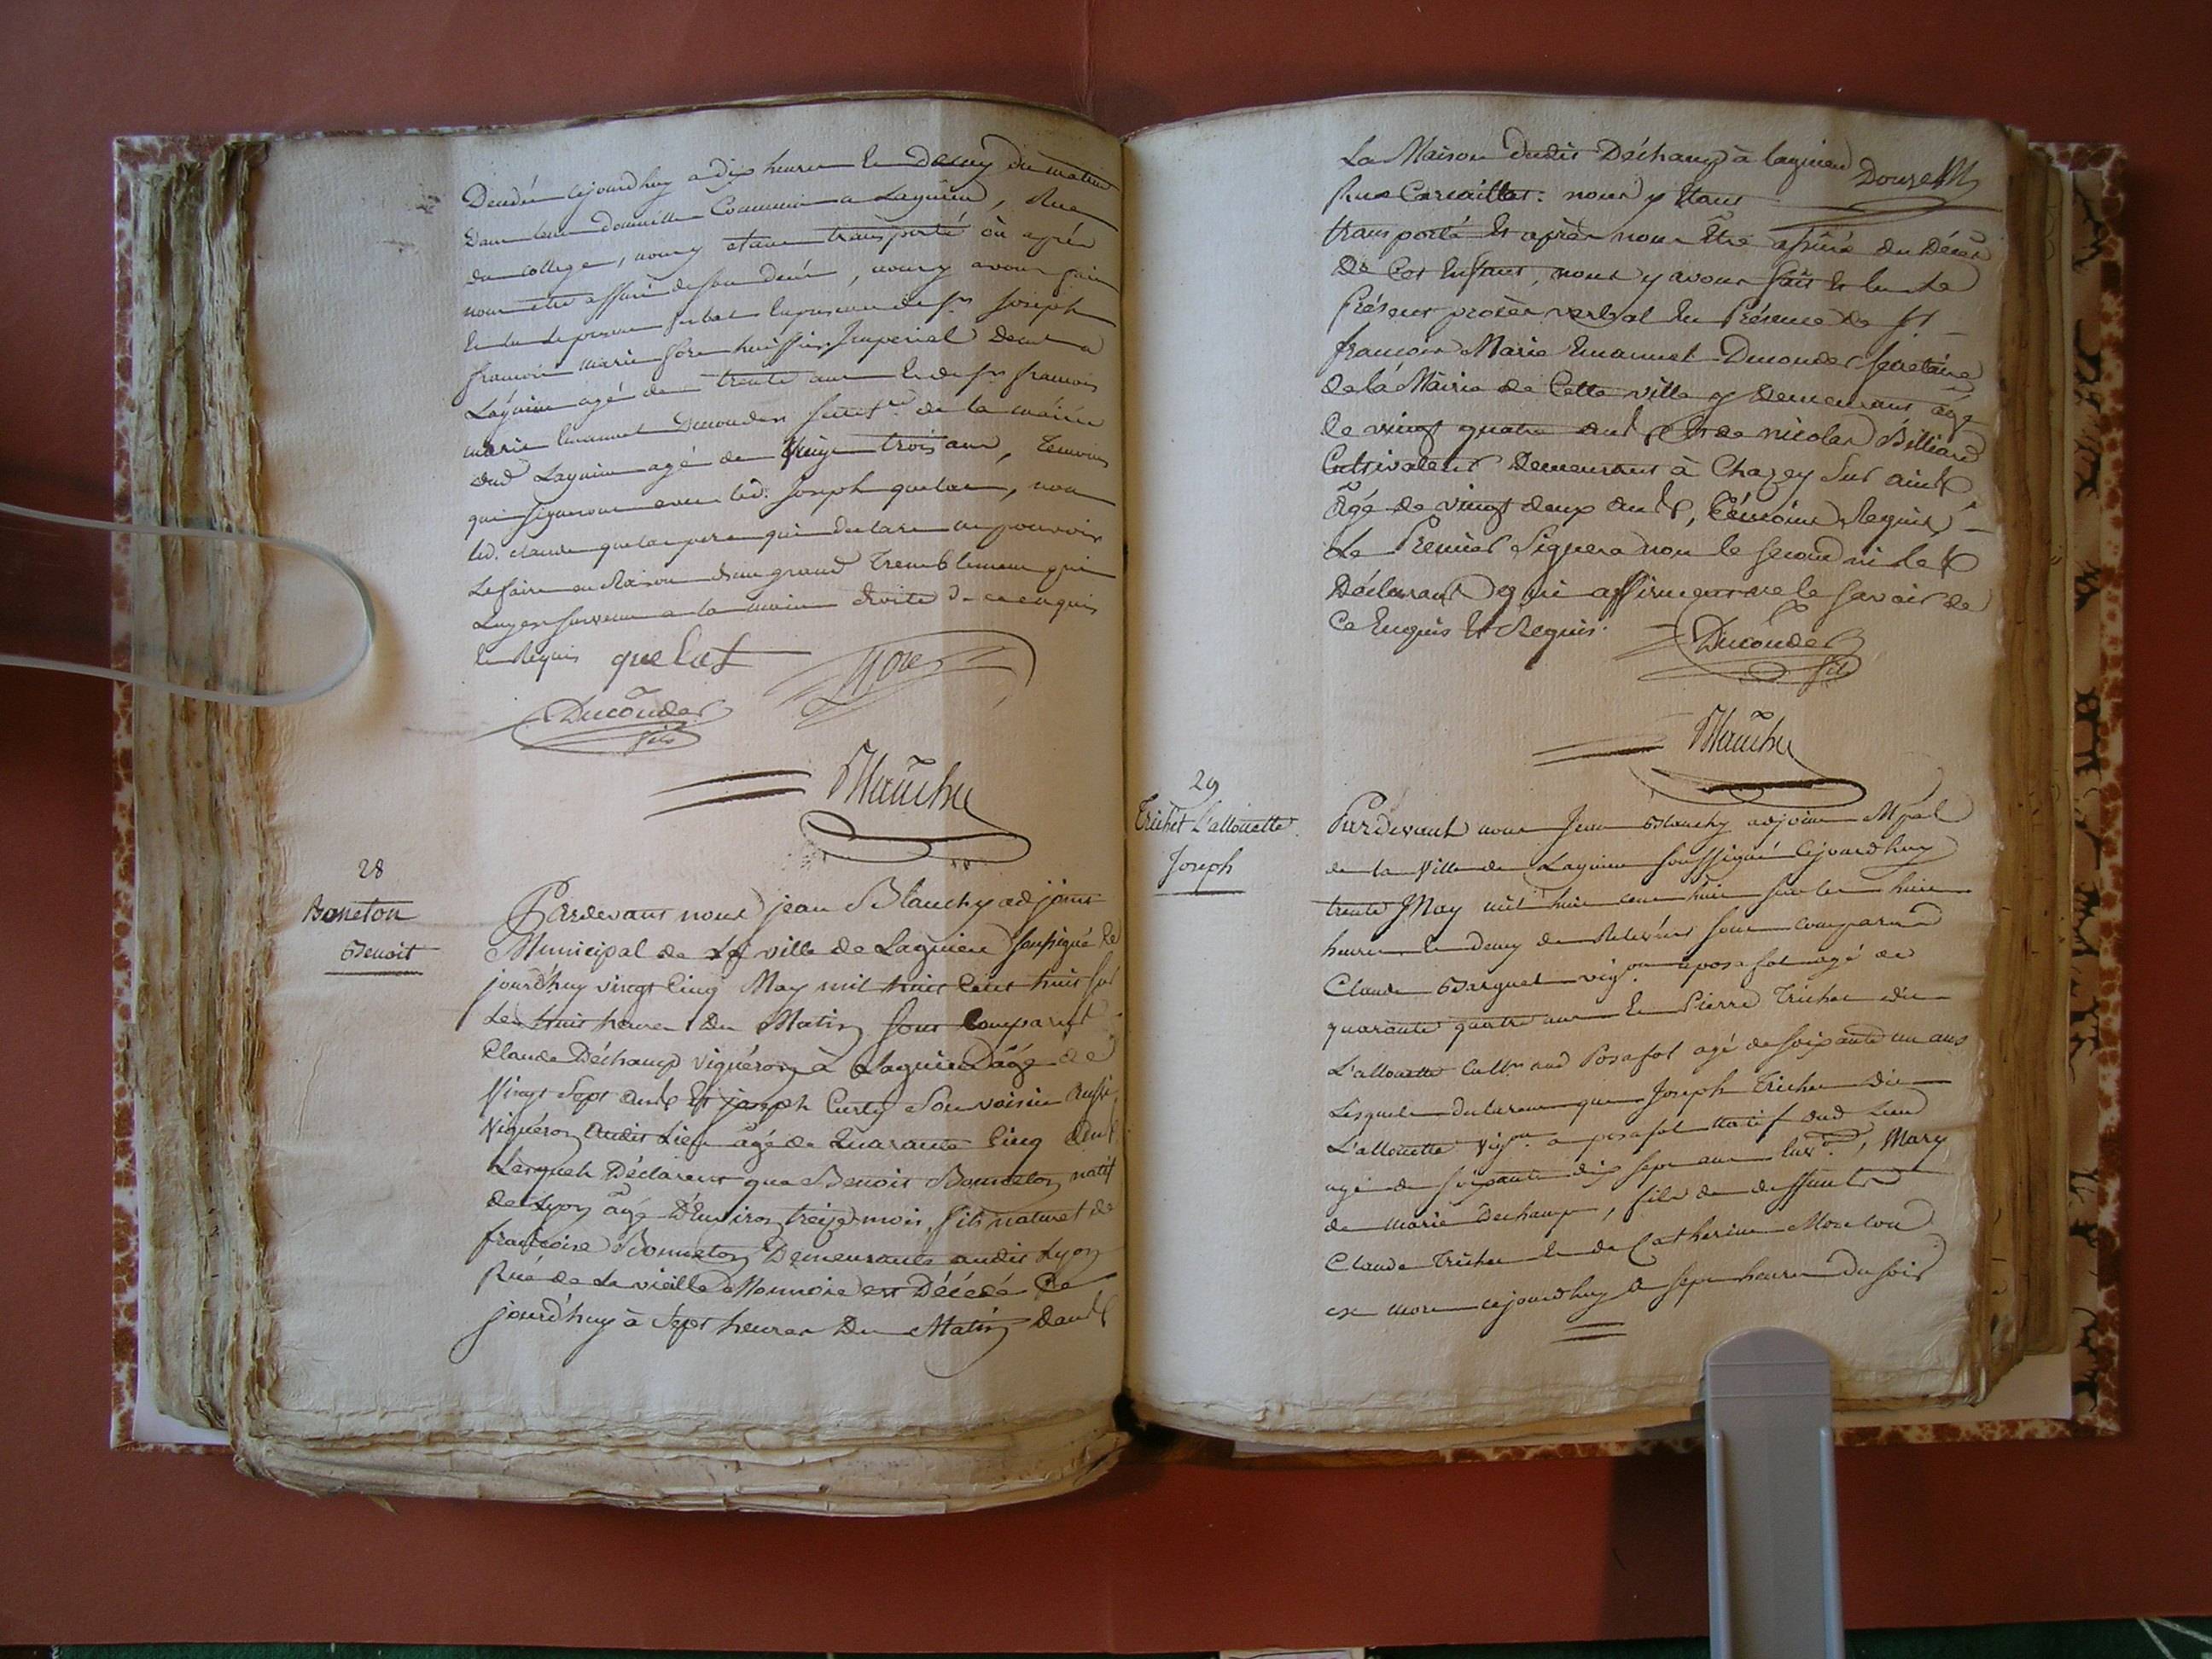 Décédée cejourd'huy a dix heures et demy du matin
dans leur domicille commun a Lagnieu, Rue
du college, nous y etant transporté où après
nous etre assuré de son decès, nous y avons fait
et lu le present verbal en presence de sr. Joseph
françois marie huissier Imperial demt a
Lagnieu agé de trente ans et de sr. françois
marie Emanuel Ducouder secret.re de la mairie
dud Lagnieu agé de vingt trois ans, temoins
qui signeront avec led. Joseph quelat, non
led. claude quelat pere qui declare ne pouvoir
Le faire en Raison d'un grand Tremblement qui
survenu a la main droite de ce enquis
et Requis quelat
Ducouder
fils
Blanchy
28
Boneton
Benoit
Pardevant nous jean Blanchy adjoint
Municipal de La ville de Lagnieu soussigné Ce
jourd'huy vingt Cinq May mil huit Cent huit sur
Les huit heures Du Matin sont Comparut
Claude Déchamp Vignéron à Lagnieu âgé de
Vingt Sept ans Et joseph Curty Son voisin aussi
Vignéron audit Lieu âgé de Quarante Cinq ans
Lesquels Déclarent que Benoit Bonneton natif
de Lyon âgé D'Environ treize mois, fils naturel de
françoise Bonneton Demeurante audit Lyon
Rue de La vieille Monnoie est Décédé Ce
jourd'huy à Sept heures Du Matin Dans
La Maison dudit Déchamp à lagnieu Douze
Rue Carcaillat: nous y Etant
transporté Et après nous Être assuré du Décès
De Cet Enfant, nous y avons fait Et lu Le
Présent procès verbal En Présence de Sr
françois Marie Emanuel Ducouder secretaire
de la Mairie de Cette ville y Demeurant âgé
de vingt quatre ans Et de nicolas Billiard
Cultivateur Demeurant à Chazey Sur ain
Âgé de vingt deux ans, témoins Requis
Le Premier Signera non le second ni les
Déclarants qui affirment ne le savoir de
Ce Enquis Et Requis.
Ducouder
fils
Blanchy
29
Trichet L'allouette
Joseph
Pardevant nous Jean Blanchy adjoint Mpal
de la Ville de Lagnieu soussigné Cejourd'huy
trente May mil huit cent huit sur les huit
heures et demy de Relevée sont comparus
Claude Barquet vig.on a posafol agé de
quarante quatre ans et Pierre Trichet dit
L'allouette Cult.r aud Posafol agé de soixante un ans
Lesquels declarent que Joseph Trichet dit
L'allouette vig.on a posafol natif dud Lieu
agé de soixante dix sept ans env.on, Mary
de marie Dechamp, fils de deffunts
Claude Trichet et de Catherine Mouton
est mort cejourd'huy a sept heures du soir